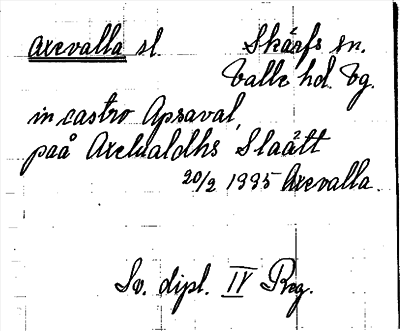 Axevalla sl. Skärfs sn.
Valle hd. Vg.
in castro Apsaval,
paå Axelualdhs Slaått
20/2 1335 Axevalla.
Sv. dipl. IV Reg.